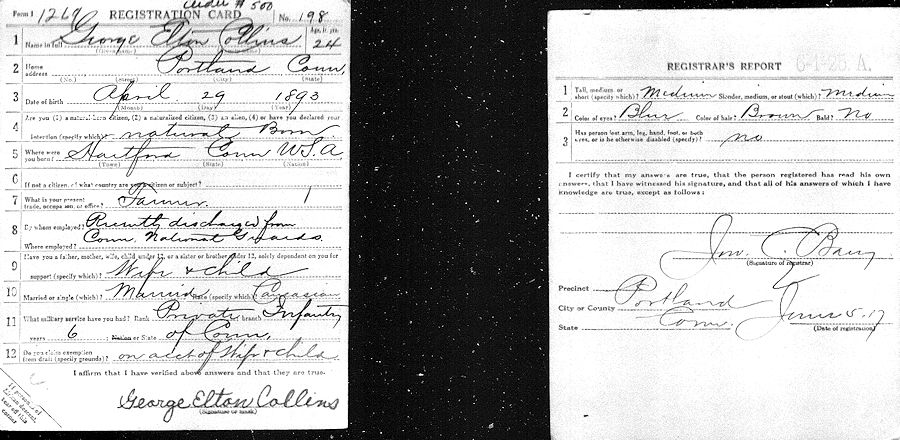 Form 1 1267 REGISTRATION CARD No. 198
1 Name in full George Elton Collins Age, in yrs. 24
(Given name) (Family name)
2 Home address Portland Conn.
(No.) (Street) (City) (State)
3 Date of birth April 29 1893
(Month) (Day) (Year)
4 Are you (1) a natural-born citizen, (2) a naturalized citizen, (3) an alien, (4) or have you declared your
intention (specify which)? natural Born
5 Where were you born? Hartford Conn U.S.A.
(Town) (State) (Nation)
6 If not a citizen, of what country are you a citizen or subject?
7 What is your present trade, occupation, or office? Farmer 1
8 By whom employed? Recently discharged from
Where employed? Conn. National Guards.
9 Have you a father, mother, wife, child under 12, or a sister or brother under 12, solely dependent on you for
support (specify which)? Wife & child
10 Married or single (which)? Married Race (specify which)? Caucasian
11 What military service have you had? Rank Private branch Infantry
years 6 ; Nation or State of Conn.
12 Do you claim exemption from draft (specify grounds)? on acct of Wife & child
I affirm that I have verified above answers and that they are true.
George Elton Collins
(Signature or mark)
If person is of African descent, tear off this corner
REGISTRAR'S REPORT 6-1-26. A.
1 Tall, medium, or short (specify which)? Medium Slender, medium, or stout (which)? medium
2 Color of eyes? Blue Color of hair? Brown Bald? No
3 Has person lost arm, leg, hand, foot, or both eyes, or is he otherwise disabled (specify)? no
I certify that my answers are true, that the person registered has read his own
answers, that I have witnessed his signature, and that all of his answers of which I have
knowledge are true, except as follows:
(Signature of registrar)
Precinct
City or County Portland
State Conn. June 5-17
(Date of registration)